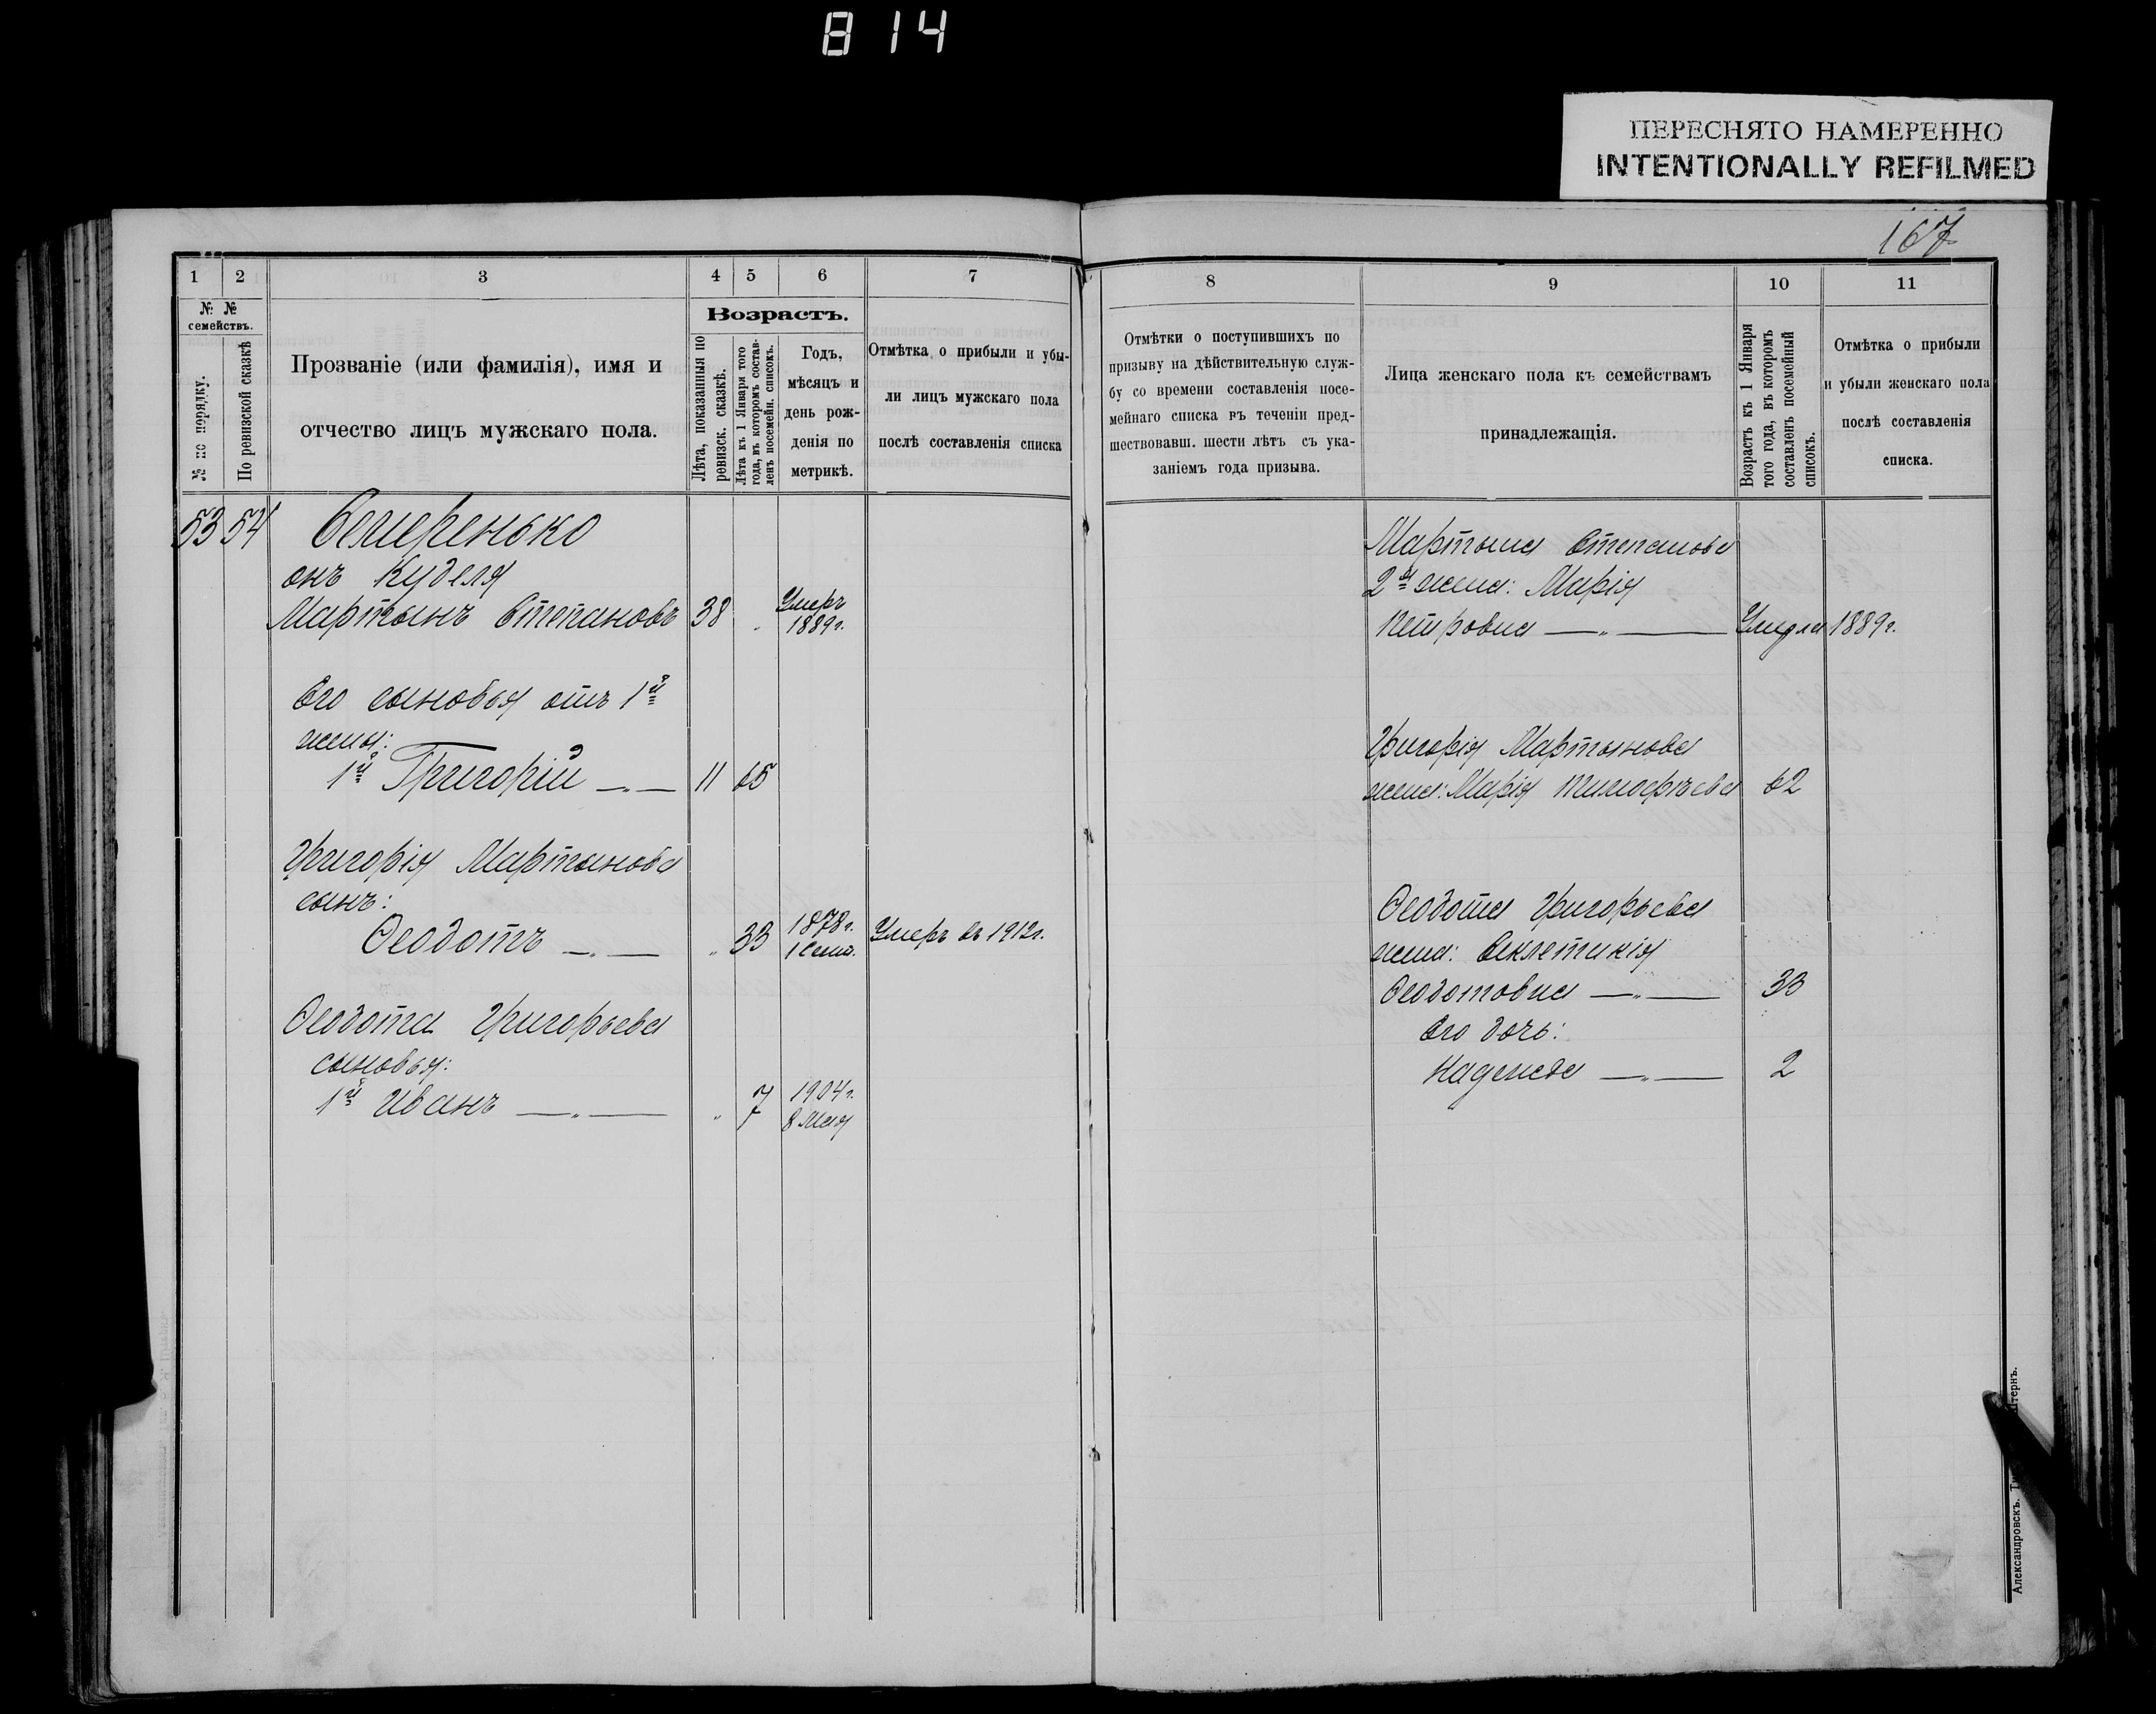 814
ПЕРЕСНЯТО НАМЕРЕННО
INTENTIONALLY REFILMED
167
1
2
3
4
5
6
7
№ №
семействъ.
№ по порядку.
По ревизской сказкѣ
Прозваніе (или фамилія), имя и
отчество лицъ мужскаго пола.
Возрастъ.
Лѣта, показанныя по
ревизск. сказкѣ.
Лѣта къ 1 Января того
года, въ которомъ состав-
ленъ посемейн. списокъ.
Годъ,
мѣсяцъ и
день рож-
денія по
метрикѣ.
Отмѣтка о прибыли и убы-
ли лицъ мужскаго пола
послѣ составленія списка
53 54 Семеренько
онъ Куделя
Мартынъ Степановъ 38 Умеръ
1889г.
Его сыновья отъ 1й
жены:
1й Григорій —„— 11 65
Григорія Мартынова
сынъ:
Ѳеодотъ —„— „ 33 1878г. Умеръ въ 1912г.
1 Сент.
Ѳеодота Григорьева
сыновья:
1й Иванъ —„— „ 7 1904г.
8 Мая
8
9
10
11
Отмѣтки о поступившихъ по
призыву на дѣйствительную служ-
бу со времени составленія посе-
мейнаго списка въ теченіи пред-
шествовавш. шести лѣтъ съ ука-
заніемъ года призыва.
Лица женскаго пола къ семействамъ
принадлежащія.
Возрастъ къ 1 Января
того года, въ которомъ
составленъ посемейный
списокъ.
Отмѣтка о прибыли
и убыли женскаго пола
послѣ составленія
списка.
Мартына Степанова
2я жена: Марія
Петровна —„— Умерла 1889г.
Григорія Мартынова
жена: Марія Тимофѣева 62
Ѳеодота Григорьева
жена: Секлетикія
Ѳеодотовна —„— 33
Его дочь:
Надежда —„— 2
Александровскъ.